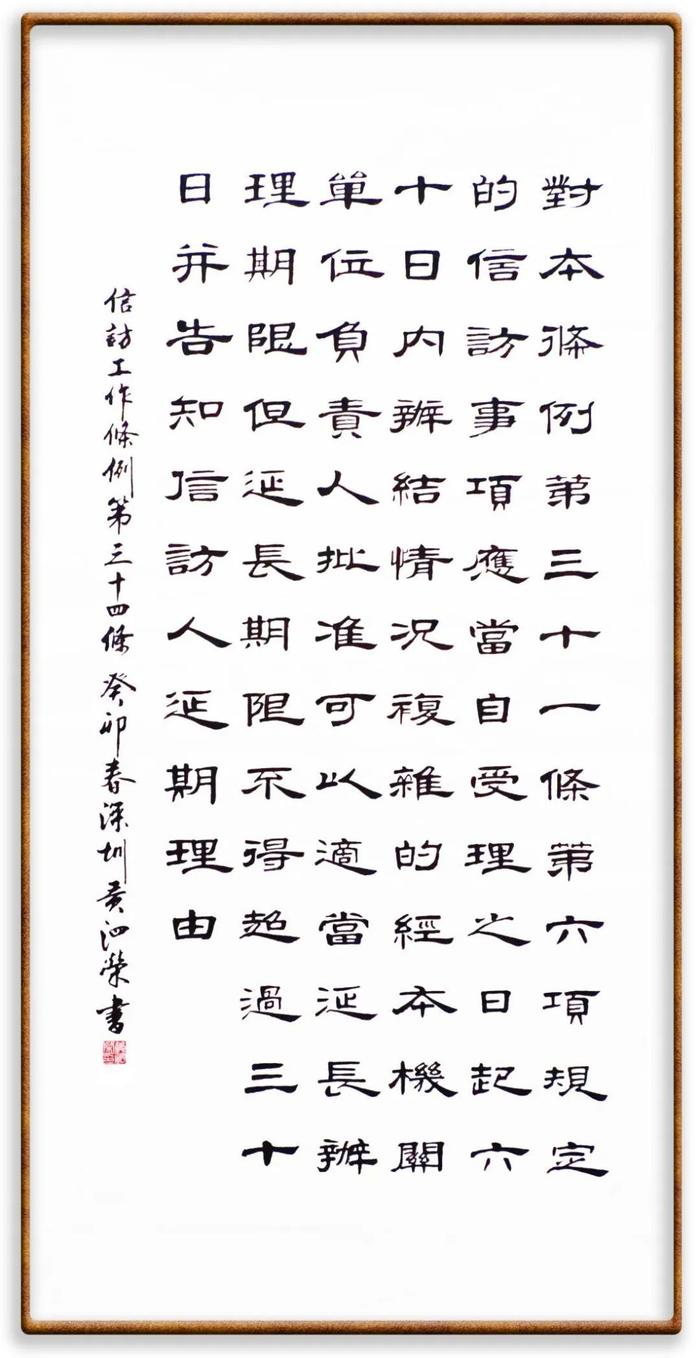 對本條例第三十一條第六項規定
的信訪事項應當自受理之日起六
十日內辦結情況複雜的經本機關
單位負責人批准可以適當延長辦
理期限但延長期限不得超過三十
日并告知信訪人延期理由
信訪工作條例第三十四條 癸卯春深圳黃泗榮書